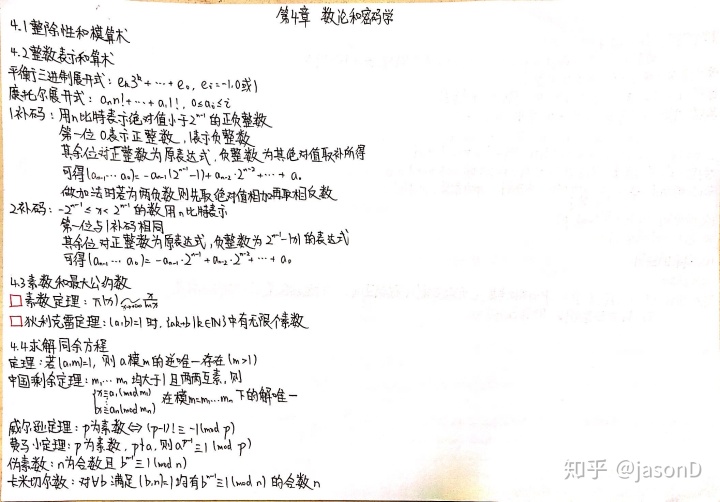 第4章 数论和密码学
4.1 整除性和模算术
4.2 整数表示和算术
平衡三进制展开式: eₖ3ᵏ+…+e₀, eᵢ=-1,0或1
康托尔展开式: aₙn!+…+a₁1!, 0≤aᵢ≤i
1补码: 用n比特表示绝对值小于2ⁿ⁻¹的正负整数
第一位0表示正整数, 1表示负整数
其余位对正整数为原表达式, 负整数为其绝对值取补所得
可得(aₙ₋₁…a₀)=-aₙ₋₁(2ⁿ⁻¹-1)+aₙ₋₂·2ⁿ⁻²+…+a₀
做加法时若为两负数则先取绝对值相加再取相反数
2补码: -2ⁿ⁻¹≤x<2ⁿ⁻¹的数用n比特表示
第一位与1补码相同
其余位对正整数为原表达式, 负整数为2ⁿ⁻¹-|x|的表达式
可得(aₙ₋₁…a₀)=-aₙ₋₁·2ⁿ⁻¹+aₙ₋₂·2ⁿ⁻²+…+a₀
4.3 素数和最大公约数
□素数定理: π(x) ~ x/lnx x→+∞
□狄利克雷定理: (a,b)=1时, {ak+b|k∈N}中有无限个素数
4.4 求解同余方程
定理: 若(a,m)=1, 则a模m的逆唯一存在(m>1)
中国剩余定理: m₁…mₙ均大于1且两两互素, 则
{x≡a₁(mod m₁)
⋮ 在模m=m₁…mₙ下的解唯一
x≡aₙ(mod mₙ)
威尔逊定理: p为素数⇔(p-1)!≡-1(mod p)
费马小定理: p为素数, p∤a, 则aᵖ⁻¹≡1(mod p)
伪素数: n为合数且bⁿ⁻¹≡1(mod n)
卡米切尔数: 对∀b满足(b,n)=1均有bⁿ⁻¹≡1(mod n)的合数n
知乎 @jasonD